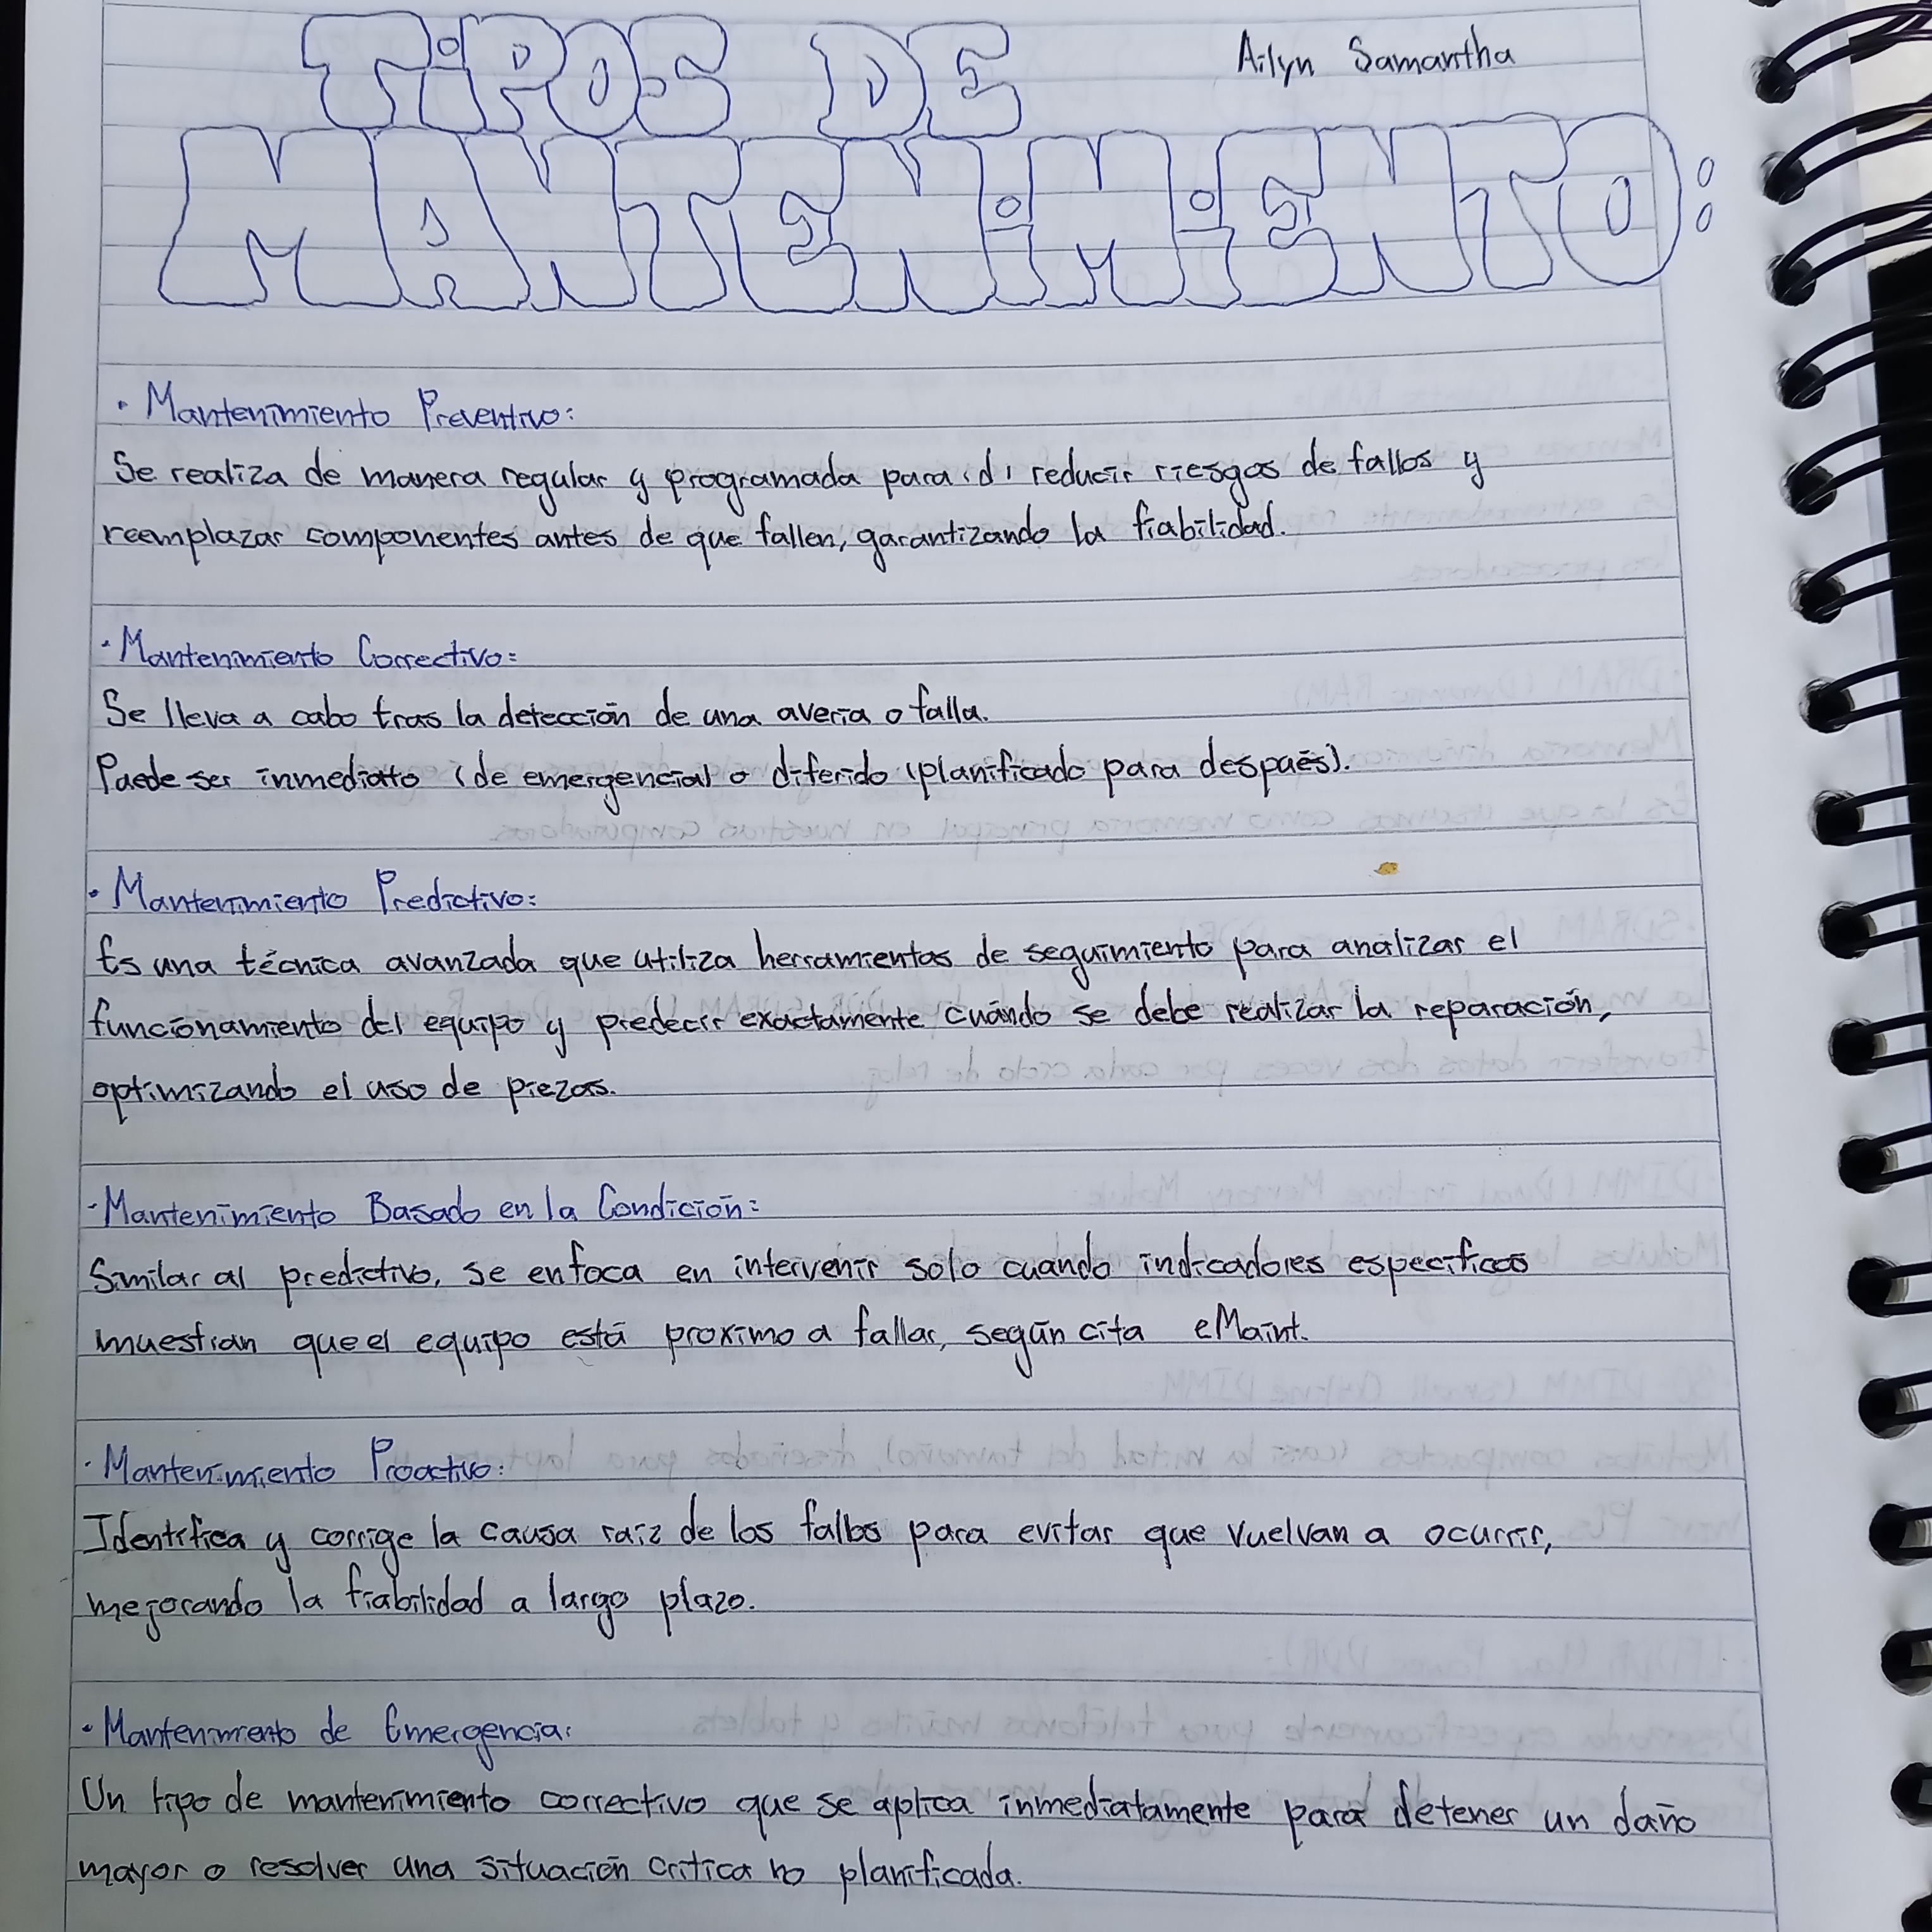 TiPOS DE
Ailyn Samantha
MANTENiMiENTO:
· Mantenimiento Preventivo:
Se realiza de manera regular y programada para reducir riesgos de fallos y
reemplazar componentes antes de que fallen, garantizando la fiabilidad.
· Mantenimiento Correctivo:
Se lleva a cabo tras la detección de una avería o falla.
Puede ser inmediato (de emergencia) o diferido (planificado para después).
· Mantenimiento Predictivo:
Es una técnica avanzada que utiliza herramientas de seguimiento para analizar el
funcionamiento del equipo y predecir exactamente cuándo se debe realizar la reparación,
optimizando el uso de piezas.
· Mantenimiento Basado en la Condición:
Similar al predictivo, se enfoca en intervenir solo cuando indicadores específicos
muestran que el equipo está proximo a fallar, según cita eMaint.
· Mantenimiento Proactivo:
Identifica y corrige la causa raíz de los fallos para evitar que vuelvan a ocurrir,
mejorando la fiabilidad a largo plazo.
· Mantenimiento de Emergencia:
Un tipo de mantenimiento correctivo que se aplica inmediatamente para detener un daño
mayor o resolver una situación crítica no planificada.